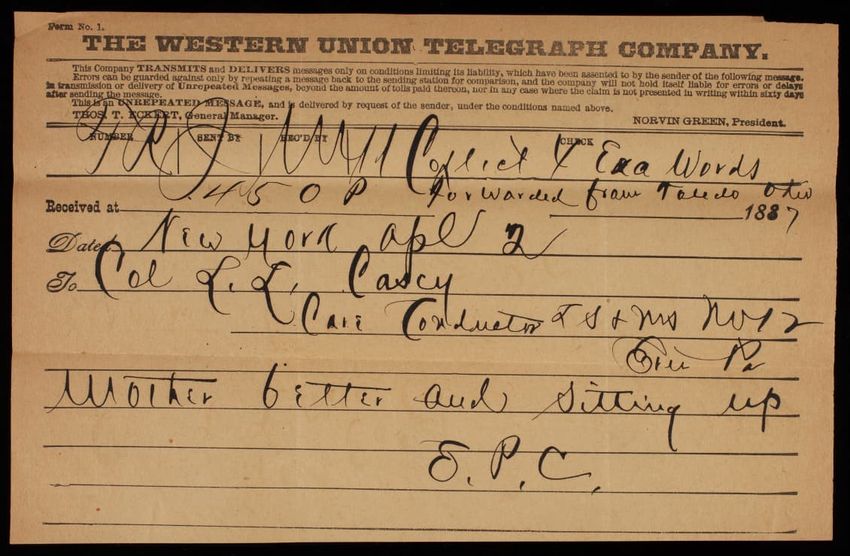 Form No. 1.
THE WESTERN UNION TELEGRAPH COMPANY.
This Company TRANSMITS and DELIVERS messages only on conditions limiting its liability, which have been assented to by the sender of the following message.
Errors can be guarded against only by repeating a message back to the sending station for comparison, and the company will not hold itself liable for errors or delays
in transmission or delivery of Unrepeated Messages, beyond the amount of tolls paid thereon, nor in any case where the claim is not presented in writing within sixty days
after sending the message.
This is an UNREPEATED MESSAGE, and is delivered by request of the sender, under the conditions named above.
THOS. T. ECKERT, General Manager. NORVIN GREEN, President.
NUMBER SENT BY REC'D BY CHECK
Collect 4 Exa Words
450 P forwarded from Toledo Ohio
Received at 1887
Dated New York Apl 2
To Col L. L. Casey
Care Conductor L S & MS No 12
Erie Pa
Mother better and sitting up
E. P. C.